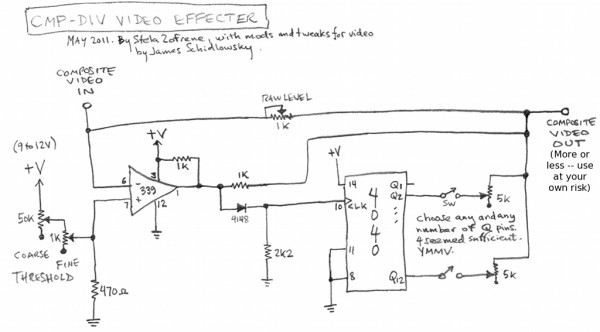 CMP-DIV VIDEO EFFECTER
MAY 2011. By Stela Zofrene, with mods and tweaks for video
by James Schidlowsky.
COMPOSITE
VIDEO
IN
RAW LEVEL
1K
COMPOSITE
VIDEO
OUT
(More or
less -- use
at your
own risk)
(9 to 12V)
+V
+V
1K
+V
6
-
339
+
7
3
12
1
1K
4148
2K2
14
10
CLK
4040
11
8
Q1
Q2
Q12
SW
5K
5K
choose any and any
number of Q pins.
4 seemed sufficient.
YMMV.
50K
1K
COARSE
FINE
THRESHOLD
470Ω